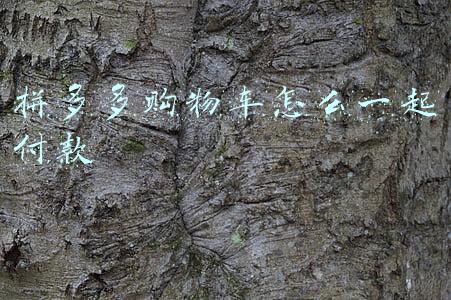 拼多多购物车怎么一起
付款